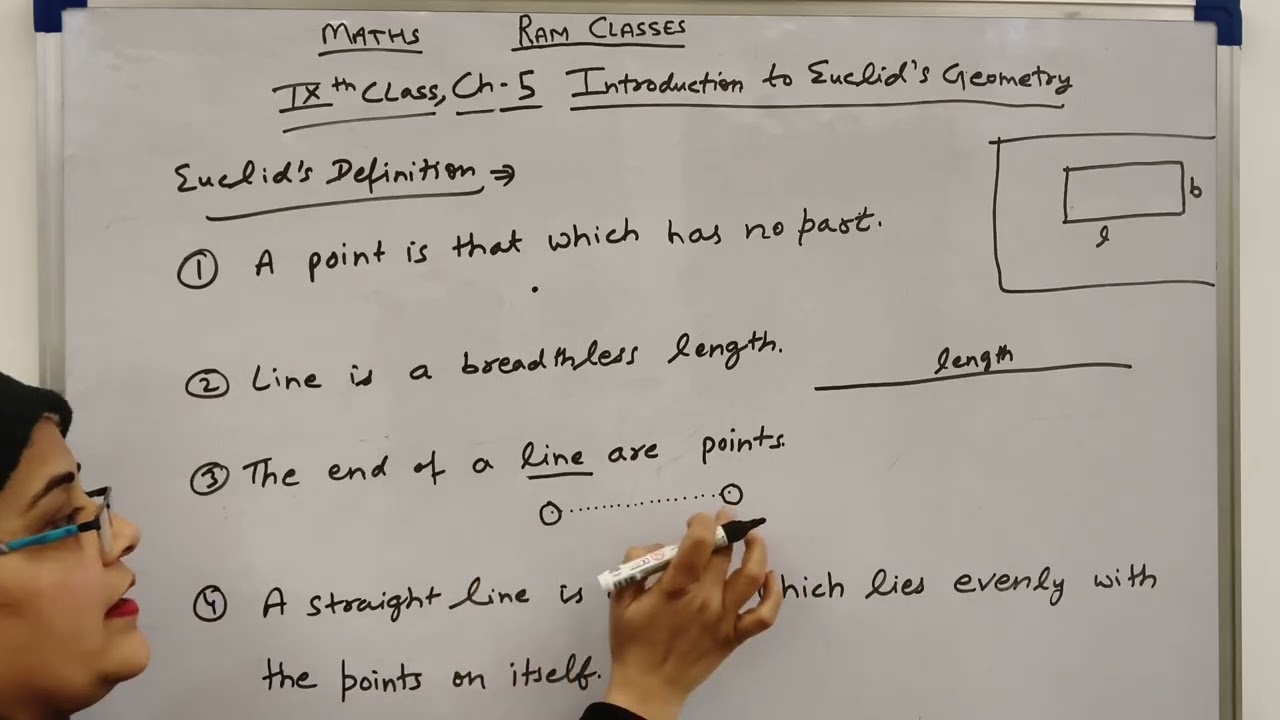 MATHS RAM CLASSES
IXth CLass, Ch-5 Introduction to Euclid's Geometry
Euclid's Definition ⇒
① A point is that which has no part.
b
l
② Line is a breadthless length.
length
③ The end of a line are points.
④ A straight line is which lies evenly with
the points on itself.